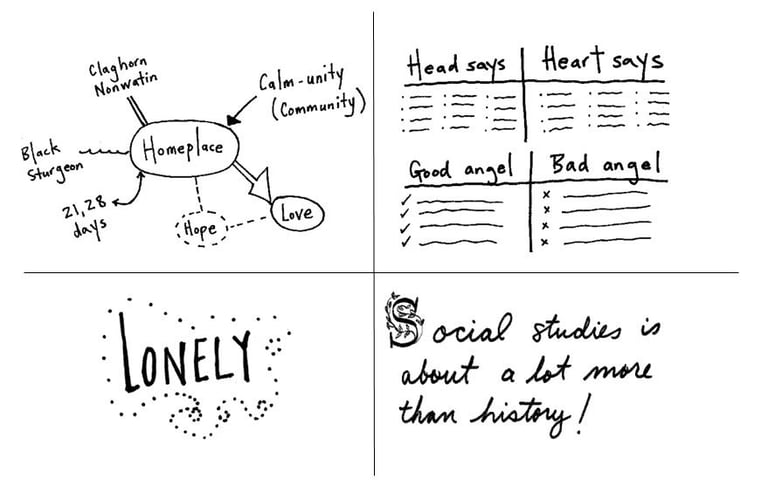 Claghorn
Nonwatin
Calm-unity
(Community)
Black
Sturgeon
Homeplace
21,28
days
Hope
Love
Head says
Heart says
Good angel
Bad angel
LONELY
Social studies is
about a lot more
than history!